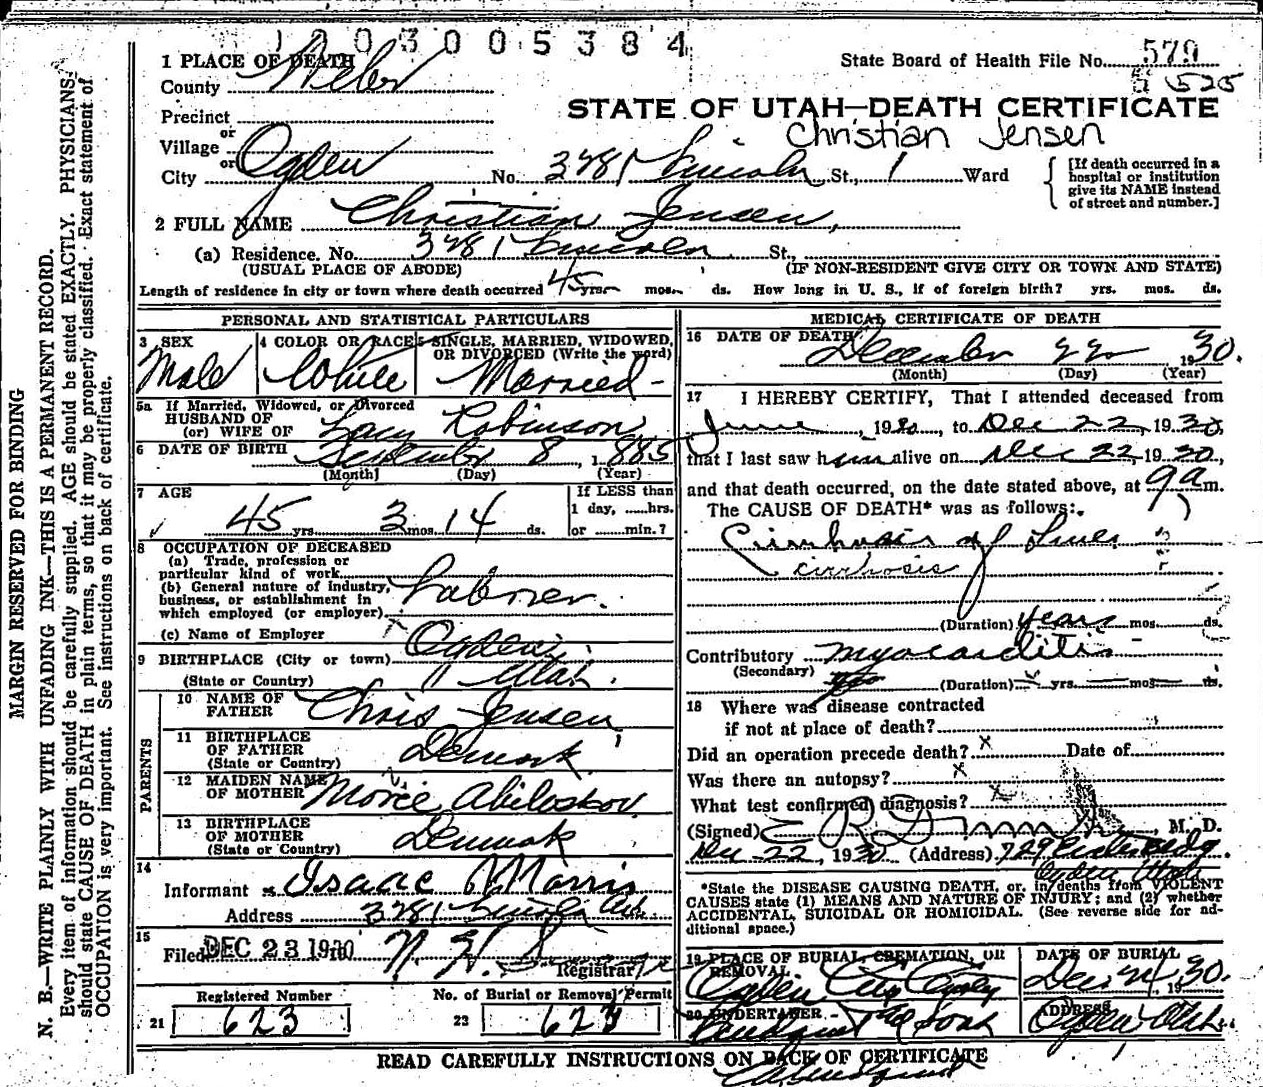 1 2 0 3 0 0 5 3 8 4
1 PLACE OF DEATH
State Board of Health File No. 579
525
County Weber
STATE OF UTAH—DEATH CERTIFICATE
Precinct
Christian Jensen
or
Village
or
City Ogden No. 3281 Lincoln St., 1 Ward
[If death occurred in a hospital or institution give its NAME instead of street and number.]
2 FULL NAME Christian Jensen,
(a) Residence. No. 3281 Lincoln St.,
(USUAL PLACE OF ABODE) (IF NON-RESIDENT GIVE CITY OR TOWN AND STATE)
Length of residence in city or town where death occurred 45 yrs. mos. ds. How long in U. S., if of foreign birth? yrs. mos. ds.
PERSONAL AND STATISTICAL PARTICULARS
3 SEX Male
4 COLOR OR RACE White
5 SINGLE, MARRIED, WIDOWED, OR DIVORCED (Write the word) Married
5a If Married, Widowed, or Divorced
HUSBAND OF
(or) WIFE OF Robinson
6 DATE OF BIRTH September 8, 1885
(Month) (Day) (Year)
7 AGE
45 yrs. 3 mos. 14 ds.
If LESS than
1 day, ......hrs.
or ......min.?
8 OCCUPATION OF DECEASED
(a) Trade, profession or
particular kind of work
(b) General nature of industry,
business, or establishment in
which employed (or employer) Laborer.
(c) Name of Employer
9 BIRTHPLACE (City or town) Ogden,
(State or Country) Utah.
PARENTS
10 NAME OF FATHER Chris Jensen
11 BIRTHPLACE OF FATHER (State or Country) Demark
12 MAIDEN NAME OF MOTHER
13 BIRTHPLACE OF MOTHER (State or Country) Denmark
14
Informant Isaac Morris
Address 3281 Lincoln Ave.
15
Filed DEC 23 1930
Registrar
Registered Number
21 623
No. of Burial or Removal Permit
23 623
MEDICAL CERTIFICATE OF DEATH
16 DATE OF DEATH December 22 1930.
(Month) (Day) (Year)
17 I HEREBY CERTIFY, That I attended deceased from
June, 1930, to Dec 22, 1930,
that I last saw him alive on Dec 22, 1930,
and that death occurred, on the date stated above, at 9 a m.
The CAUSE OF DEATH* was as follows:
Cirrhosis of Liver
cirrhosis
(Duration) years mos. ds.
Contributory myocarditis
(Secondary)
(Duration) yrs. mos. ds.
18 Where was disease contracted
if not at place of death?
Did an operation precede death? x Date of
Was there an autopsy? x
What test confirmed diagnosis? x
(Signed) M. D.
Dec 22, 1930 (Address)
Ogden Utah
*State the DISEASE CAUSING DEATH, or, in deaths from VIOLENT
CAUSES state (1) MEANS AND NATURE OF INJURY; and (2) whether
ACCIDENTAL, SUICIDAL OR HOMICIDAL. (See reverse side for ad-
ditional space.)
19 PLACE OF BURIAL, CREMATION, OR REMOVAL
Ogden City Cemetery
DATE OF BURIAL
Dec 24, 1930.
20 UNDERTAKER
Lindquist & Sons
ADDRESS
Ogden Utah.
READ CAREFULLY INSTRUCTIONS ON BACK OF CERTIFICATE
MARGIN RESERVED FOR BINDING
N. B.—WRITE PLAINLY WITH UNFADING INK—THIS IS A PERMANENT RECORD.
Every item of information should be carefully supplied. AGE should be stated EXACTLY. PHYSICIANS
should state CAUSE OF DEATH in plain terms, so that it may be properly classified. Exact statement of
OCCUPATION is very important. See instructions on back of certificate.